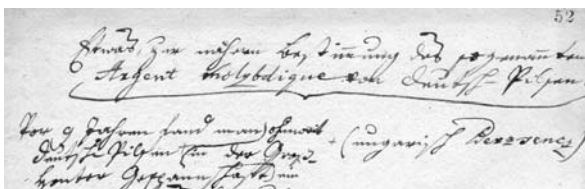 52
Etwas zur nähern Bestimmung des sogenannten
Argent molybdique von Deutsch-Pilsen
Vor 9 Jahren fand man ohnweit
Deutsch Pilsen (in der Groß-
+ (ungarisch Berzsencz)
Honter Gespannschaft) ein